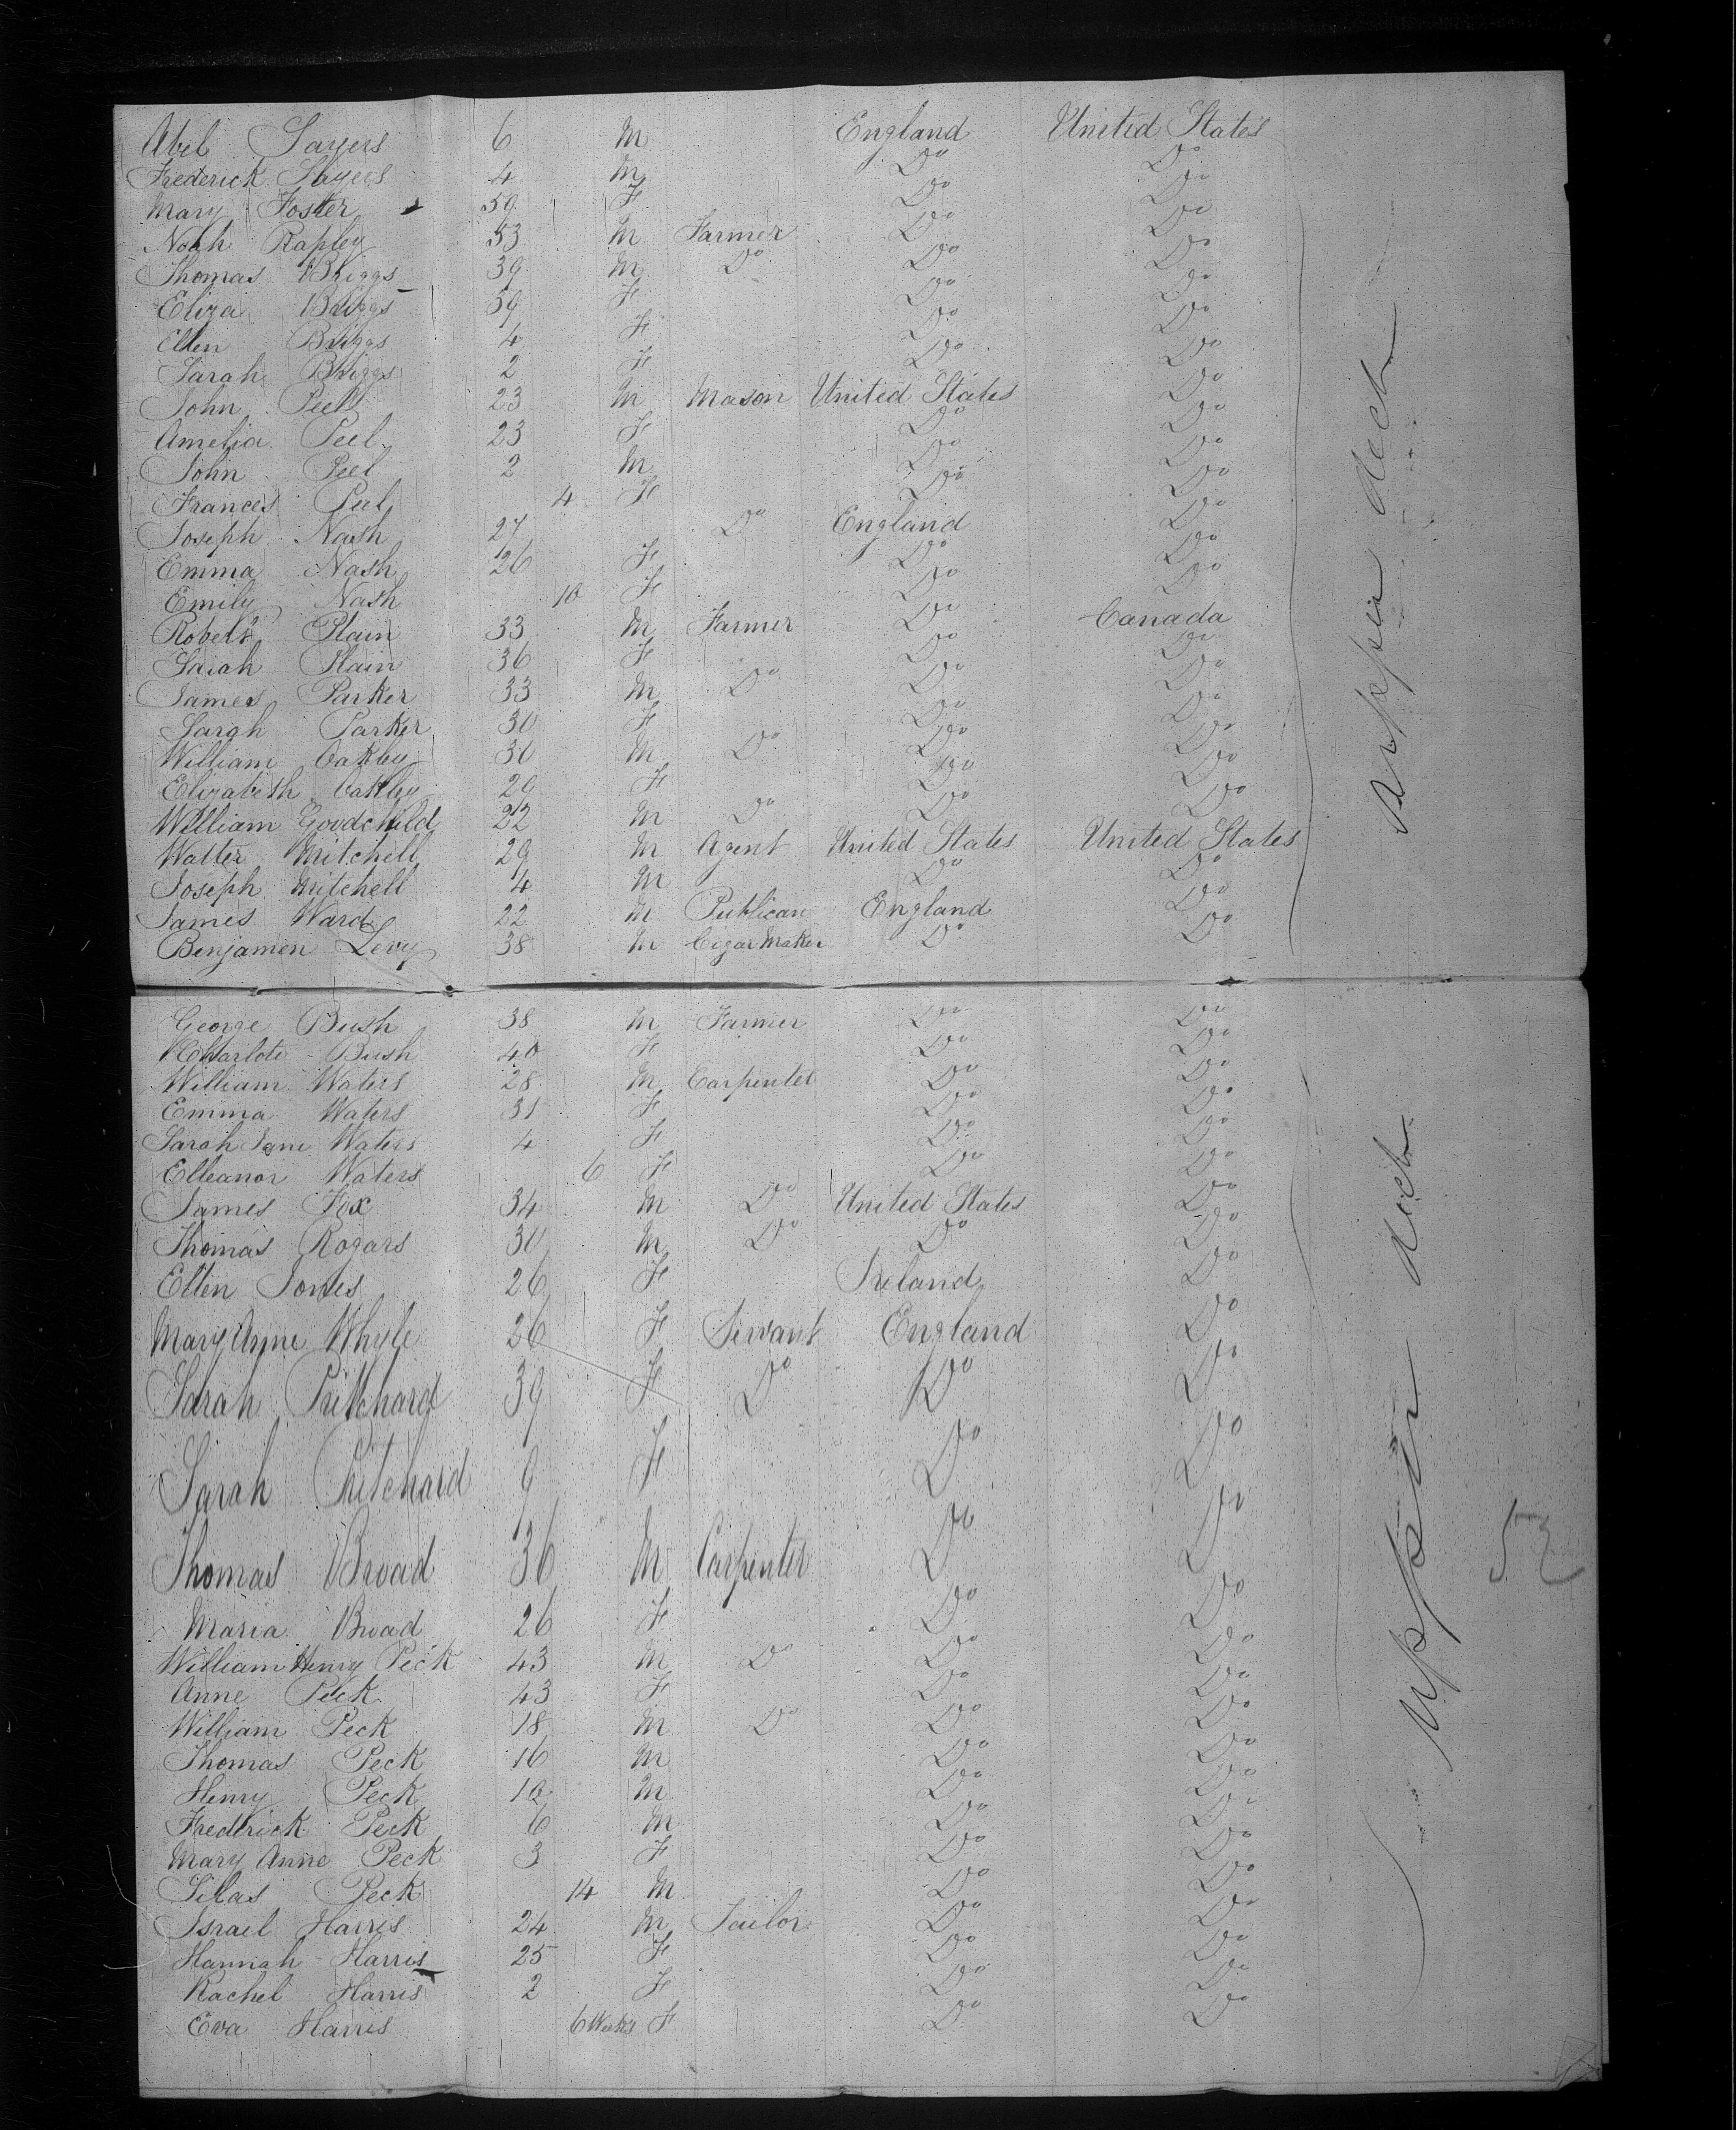 Abel Sayers 6 M England United States
Frederick Sayers 4 M Do Do
Mary Foster 59 F Do Do
Noah Rapley 53 M Farmer Do Do
Thomas Briggs 39 M Do Do Do
Eliza Briggs 39 F Do Do
Ellen Briggs 4 F Do Do
Sarah Briggs 2 F Do Do
John Peel 23 M Mason United States Do
Amelia Peel 23 F Do Do
John Peel 2 M Do Do
Frances Peel 4 F Do Do
Joseph Nash 27 Do England Do
Emma Nash 26 F Do Do
Emily Nash 10 F Do Do
Robert Plain 33 M Farmer Do Canada
Sarah Plain 36 F Do Do
James Parker 33 M Do Do Do
Sargh Parker 30 F Do Do
William Oakley 30 M Do Do Do
Elizabeth Oakley 26 F Do Do
William Goodchild 22 M Do Do Do
Walter Mitchell 29 M Agent United States United States
Joseph Mitchell 4 M Do Do
James Ward 22 M Publican England Do
Benjamen Levy 38 M Cigar Maker Do Do
Upper deck
George Bush 38 M Farmer Do Do
Charlote Bush 40 F Do Do
William Waters 28 M Carpenter Do Do
Emma Waters 31 F Do Do
Sarah Jane Waters 4 F Do Do
Elleanor Waters 6 F Do Do
James Fox 34 M Do United States Do
Thomas Rogars 30 M Do Do Do
Ellen Jones 26 F Ireland Do
Mary Anne Whyle 26 F Servant England Do
Sarah Pritchard 39 F Do Do Do
Sarah Pritchard 9 F Do Do
Thomas Broad 36 M Carpenter Do Do
Maria Broad 26 F Do Do
William Henry Peck 43 M Do Do Do
Anne Peck 43 F Do Do
William Peck 18 M Do Do Do
Thomas Peck 16 M Do Do
Henry Peck 10 M Do Do
Frederick Peck 6 M Do Do
Mary Anne Peck 3 F Do Do
Silas Peck 14 M Do Do
Israel Harris 24 M Tailor Do Do
Hannah Harris 25 F Do Do
Rachel Harris 2 F Do Do
Eva Harris 6 Weeks F Do Do
Upper deck
52